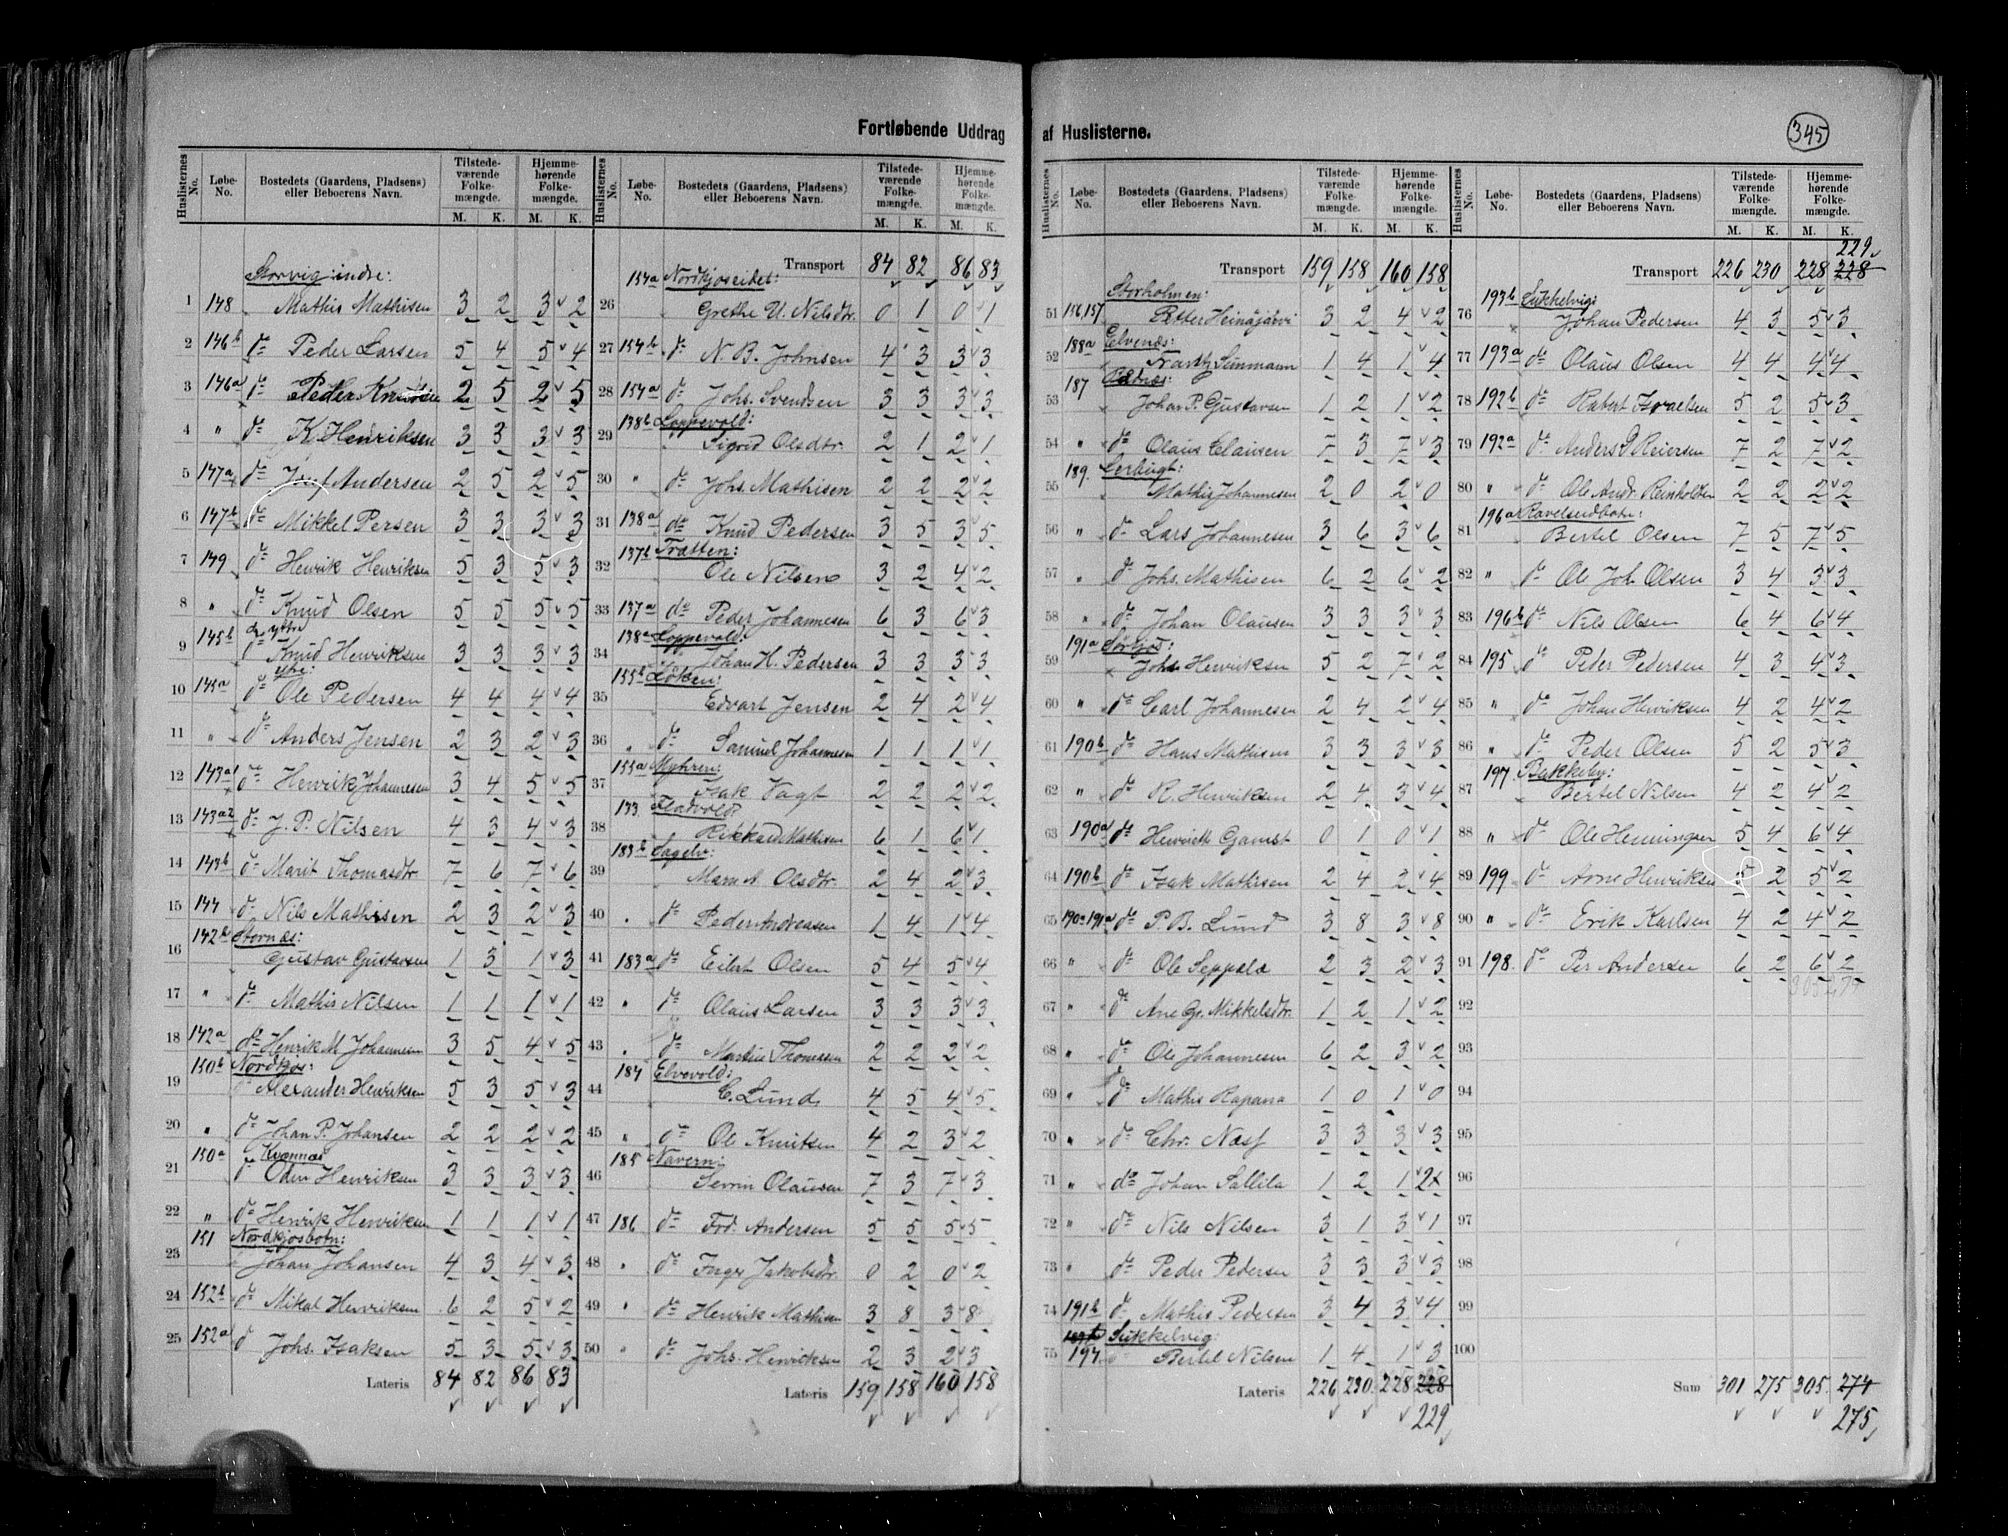 Fortløbende Uddrag af Huslisterne.
345
Huslisternes No. Løbe-No. Bostedets (Gaardens, Pladsens) eller Beboerens Navn. Tilstedeværende Folkemængde. M. K. Hjemmehørende Folkemængde. M. K.
Storvig indre:
1 148 Mathis Mathisen 3 2 3 2
2 146b do Peder Larsen 5 4 5 4
3 146a do Peder Knudsen 2 5 2 5
4 " do K. Henriksen 3 3 3 3
5 147a do Josef Andersen 2 5 2 5
6 147b do Mikkel Persen 3 3 3 3
7 149 do Henrik Henriksen 5 3 5 3
8 " do Knud Olsen 5 5 5 5
do ytre
9 145b do Knud Henriksen 3 3 3 3
10 145a do Ole Pedersen 4 4 4 4
11 " do Anders Jensen 2 3 2 3
12 143a1 do Henrik Johannesen 3 4 5 5
13 143a2 do J. P. Nilsen 4 3 4 3
14 143b do Marit Thomasdtr 7 6 7 6
15 144 do Nils Mathisen 2 3 2 3
142b Stornæs:
16 Gustav Gustavsen 1 3 1 3
17 " do Mathis Nilsen 1 1 1 1
18 142a do Henrik M. Johannesen 3 5 4 5
150b Nordkjos:
19 Alexander Henriksen 5 3 5 3
20 " do Johan P. Johansen 2 2 2 2
150a Kvænnæs
21 do Oden Henriksen 3 3 3 3
22 " do Henrik Henriksen 1 1 1 1
151 Nordkjosbotn:
23 Johan Johansen 4 3 4 3
24 152b do Mikal Henriksen 6 2 5 2
25 152a do Johs. Isaksen 5 3 5 3
Lateris 84 82 86 83
Huslisternes No. Løbe-No. Bostedets (Gaardens, Pladsens) eller Beboerens Navn. Tilstedeværende Folkemængde. M. K. Hjemmehørende Folkemængde. M. K.
Transport 84 82 86 83
154a Nordkjoseidet:
26 Grethe U. Nilsdtr. 0 1 0 1
27 154b do N. B. Johnsen 4 3 3 3
28 154a do Johs. Svendsen 3 3 3 3
138b Loppevold:
29 Sigrid Olsdtr. 2 1 2 1
30 " do Johs. Mathisen 2 2 2 2
31 138a do Knud Pedersen 3 5 3 5
137b Trætten:
32 Ole Nilsen 3 2 4 2
33 137a do Peder Johannesen 6 3 6 3
138a Loppevold:
34 Johan H. Pedersen 3 3 3 3
155b Løken:
35 Edvart Jensen 2 4 2 4
36 " do Samuel Johannesen 1 1 1 1
155a Myhren:
37 Isak Vagt 2 2 2 2
133 Fladvold
38 Rikkard Mathisen 6 1 6 1
183b Sagelv:
39 Maren A. Olsdtr 2 4 2 3
40 " do Peder Andreasen 1 4 1 4
41 183a do Eilert Olsen 5 4 5 4
42 " do Olaus Larsen 3 3 3 3
43 " do Martin Thomasen 2 2 2 2
184 Elvevold:
44 C. Lund 4 5 4 5
45 " do Ole Knutsen 4 2 3 2
185 Navern:
46 Sevrin Olausen 7 3 7 3
47 186 do Frd. Andersen 5 5 5 5
48 " do Inger Jakobsdtr 0 2 0 2
49 " do Henrik Mathisen 3 8 3 8
50 " do Johs. Henriksen 2 3 2 3
Lateris 159 158 160 158
Huslisternes No. Løbe-No. Bostedets (Gaardens, Pladsens) eller Beboerens Navn. Tilstedeværende Folkemængde. M. K. Hjemmehørende Folkemængde. M. K.
Transport 159 158 160 158
Storholmen:
51 156,157 Petter Heinäjärvi 3 2 4 2
188a Elvenæs:
52 Frantz Sunmann 1 4 1 4
187
53 Johan P. Gustavsen 1 2 1 2
54 " do Olaus Clausen 7 3 7 3
189. Lerbugt:
55 Mathis Johannesen 2 0 2 0
56 " do Lars Johannesen 3 6 3 6
57 " do Johs. Mathisen 6 2 6 2
58 " do Johan Olausen 3 3 3 3
191a Sørkjos:
59 Johs. Henriksen 5 2 7 2
60 " do Carl Johannesen 2 4 2 4
61 190b do Hans Mathisen 3 3 3 3
62 " do R. Henriksen 2 4 3 4
63 190a do Henriette Gamst 0 1 0 1
64 190b do Isak Mathisen 2 4 2 4
65 190a 191a do P. B. Lund 3 8 3 8
66 " do Ole Seppälä 2 3 2 3
67 " do Ane Gr. Mikkelsdtr. 1 2 1 2
68 " do Ole Johannesen 6 2 3 2
69 " do Mathis Rapana 1 0 1 0
70 " do Chr. Næss 3 3 3 3
71 " do Johan Sallila 1 2 1 2x
72 " do Nils Nilsen 3 1 3 1
73 " do Peder Pedersen 3 3 3 3
74 191b do Mathis Pedersen 3 4 3 4
Sukkelvig:
75 194 Bertel Nilsen 1 4 1 3
Lateris 226 230 228 228
229
Huslisternes No. Løbe-No. Bostedets (Gaardens, Pladsens) eller Beboerens Navn. Tilstedeværende Folkemængde. M. K. Hjemmehørende Folkemængde. M. K.
229
Transport 226 230 228 228
193b Sukkelvig:
76 Johan Pedersen 4 3 5 3
77 193a do Olaus Olsen 4 4 4 4
78 192b do Rabert Israelsen 5 2 5 3
79 192a do Anders P. Reiersen 7 2 7 2
80 " do Ole Andr. Reinholtsen 2 2 2 2
196a Ravelseidbotn:
81 Bertel Olsen 7 5 7 5
82 " do Ole Joh. Olsen 3 4 3 3
83 196b do Nils Olsen 6 4 6 4
84 195 do Peder Pedersen 4 3 4 3
85 " do Johan Henriksen 4 2 4 2
86 " do Peder Olsen 5 2 5 3
197. Bakkeby:
87 Bertel Nilsen 4 2 4 2
88 " do Ole Henningsen 5 4 6 4
89 199 do Arne Henriksen 5 2 5 2
90 " do Erik Karlsen 4 2 4 2
91 198. do Per Andersen 6 2 6 2
92
93
94
95
96
97
98
99
100
Sum 301 275 305 274
275